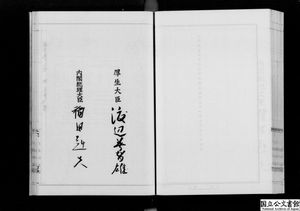 厚生大臣
渡辺美智雄
内閣総理大臣
福田赳夫
国立公文書館
National Archives of Japan